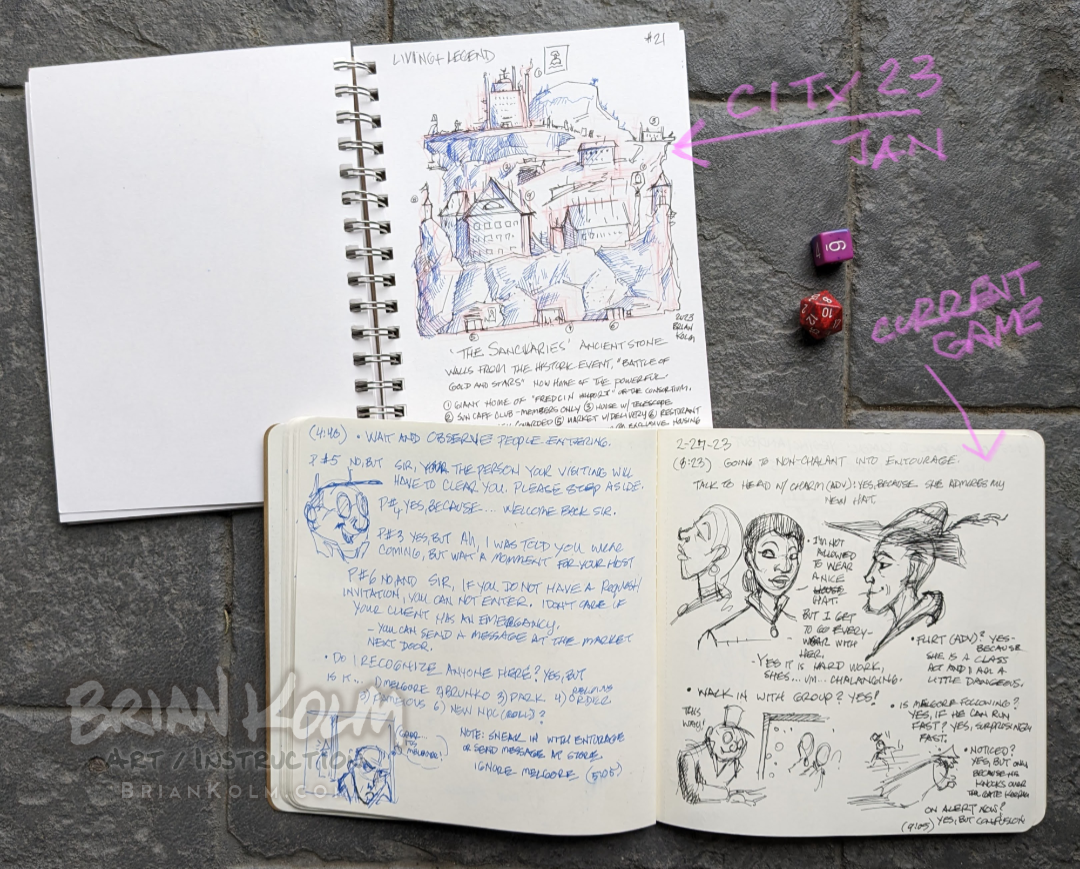 LIVING LEGEND
#21
CITY 23
JAN
2023
BRIAN
KOLM
'THE SANCUARIES' ANCIENT STONE
WALLS FROM THE HISTORIC EVENT, "BATTLE OF
GOLD AND STARS" NOW HOME OF THE POWERFUL
① GIANT HOME OF "FREDLIN OF THE CONSORTIUM,
② SUN CAFF CLUB - MEMBERS ONLY ③ HOUSE W/ TELESCOPE
GUARDED ⑤ MARKET W/ DELIVERY ⑥ RESTURANT
EXCLUSIVE HOUSING
6
10
CURRENT
GAME
(4:48) • WAIT AND OBSERVE PEOPLE ENTERING.
P#5 NO, BUT SIR, YOUR THE PERSON YOUR VISITING WILL
HAVE TO CLEAR YOU. PLEASE STEP ASIDE.
P#4 YES, BECAUSE... WELCOME BACK SIR.
P#3 YES, BUT AH, I WAS TOLD YOU WEAR
COMING, BUT WAIT A MOMMENT FOR YOUR HOST
P#6 NO, AND SIR, IF YOU DO NOT HAVE A REQUEST/
INVITATION, YOU CAN NOT ENTER. I DON'T CARE IF
YOUR CLIENT HAS AN EMERGANCY,
- YOU CAN SEND A MESSAGE AT THE MARKET
NEXT DOOR.
• DO I RECOGNIZE ANYONE HERE? YES, BUT
IS IT... 1) MELGORE 2) BRUNKO 3) DARK 4) RELIGIOUS ORDER
5) 6) NEW NPC (ROLL)?
NOTE: SNEAK IN WITH ENTORAGE
OR SEND MESSAGE AT STORE
IGNORE MELGORE (5:05)
2-27-23
(8:23) GOING TO NON-CHALANT INTO ENTOURAGE.
TALK TO HEAD W/ CHARM (ADV): YES, BECAUSE SHE ADMIRES MY
NEW HAT.
• I'M NOT
ALLOWED
TO WEAR
A NICE
HAT.
BUT I GET
TO GO EVERY-
WEAR WITH
HER.
- YES IT IS HARD WORK,
SHE'S... UM... CHALANGING.
• FLIRT (ADV)? YES-
BECAUSE
SHE IS A CLASS
ACT AND I AM A
LITTLE DANGEROUS.
• WALK IN WITH GROUP? YES!
THIS
WAY!
• IS MELGORE FOLLOWING?
YES, IF HE CAN RUN
FAST? YES, SURPRISINGLY
FAST.
• NOTICED?
YES, BUT ONLY
BECAUSE HE
KNOCKS OVER
THE GATE KEEPER
ON ALERT NOW?
YES, BUT CONFUSION
(9:05)
BRIAN KOLM
ART / INSTRUCTION
BRIANKOLM.COM